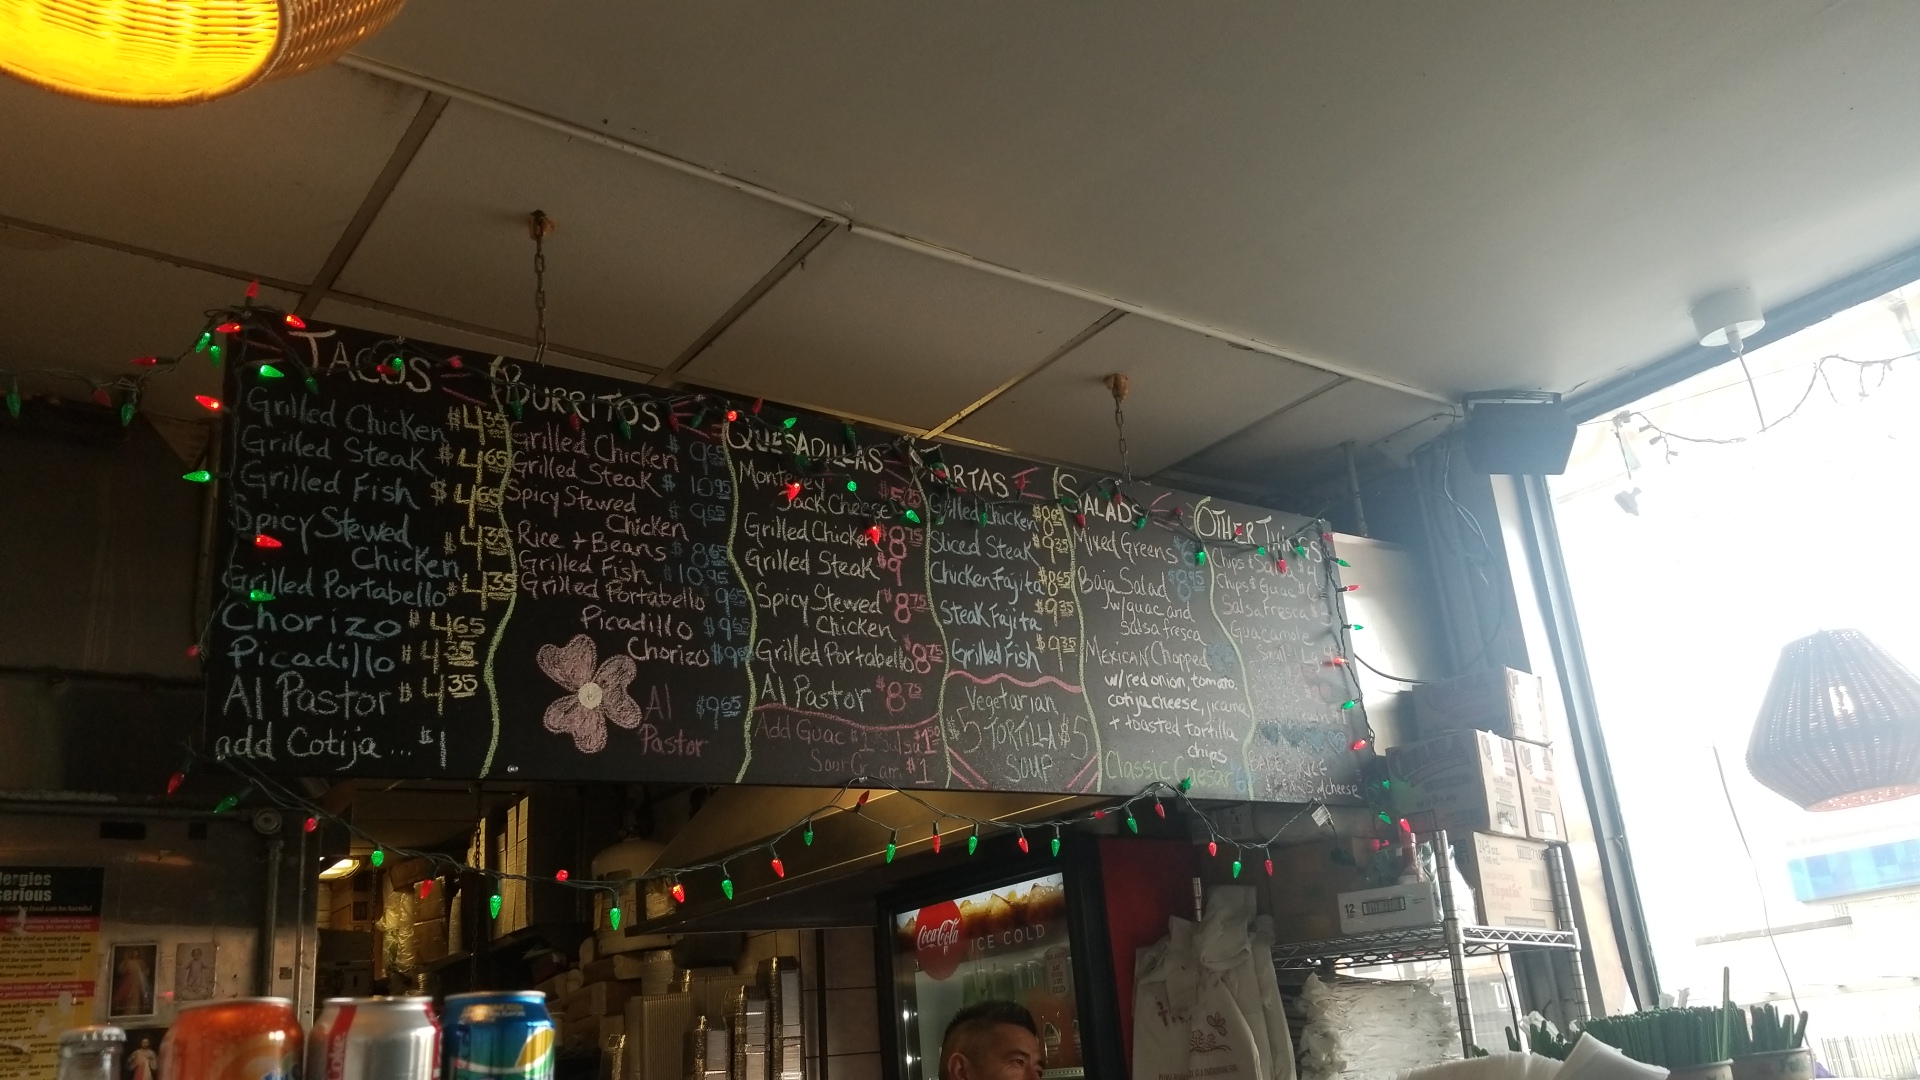 TACOS
Grilled Chicken $4.35
Grilled Steak $4.65
Grilled Fish $4.65
Spicy Stewed
Chicken $4.35
Grilled Portabello $4.35
Chorizo $4.65
Picadillo $4.35
Al Pastor $4.35
add Cotija ... $1
BURRITOS
Grilled Chicken $9.65
Grilled Steak $10.95
Spicy Stewed $9.65
Chicken
Rice + Beans $8.65
Grilled Fish $10.95
Grilled Portabello $9.65
Picadillo $9.65
Chorizo
Al $9.65
Pastor
QUESADILLAS
Monterey
Jack Cheese
Grilled Chicken $8.75
Grilled Steak $9
Spicy Stewed $8.75
Chicken
Grilled Portabello $8.75
Al Pastor $8.75
Add Guac $1 Salsa
Sour Cream $1
TORTAS
Grilled Chicken $8.65
Sliced Steak $9.35
Chicken Fajita $8.65
Steak Fajita $9.35
Grilled Fish $9.35
Vegetarian
$5 TORTILLA $5
SOUP
SALADS
Mixed Greens
Baja Salad $8.95
w/guac and
Salsa fresca
MEXICAN Chopped
w/red onion, tomato,
cotija cheese, jicama
+ toasted tortilla
chips
Classic Caesar
OTHER THINGS
Chips & Salsa
Chips & Guac
Salsa Fresca
Guacamole
cheese
Coca-Cola
ICE COLD
12